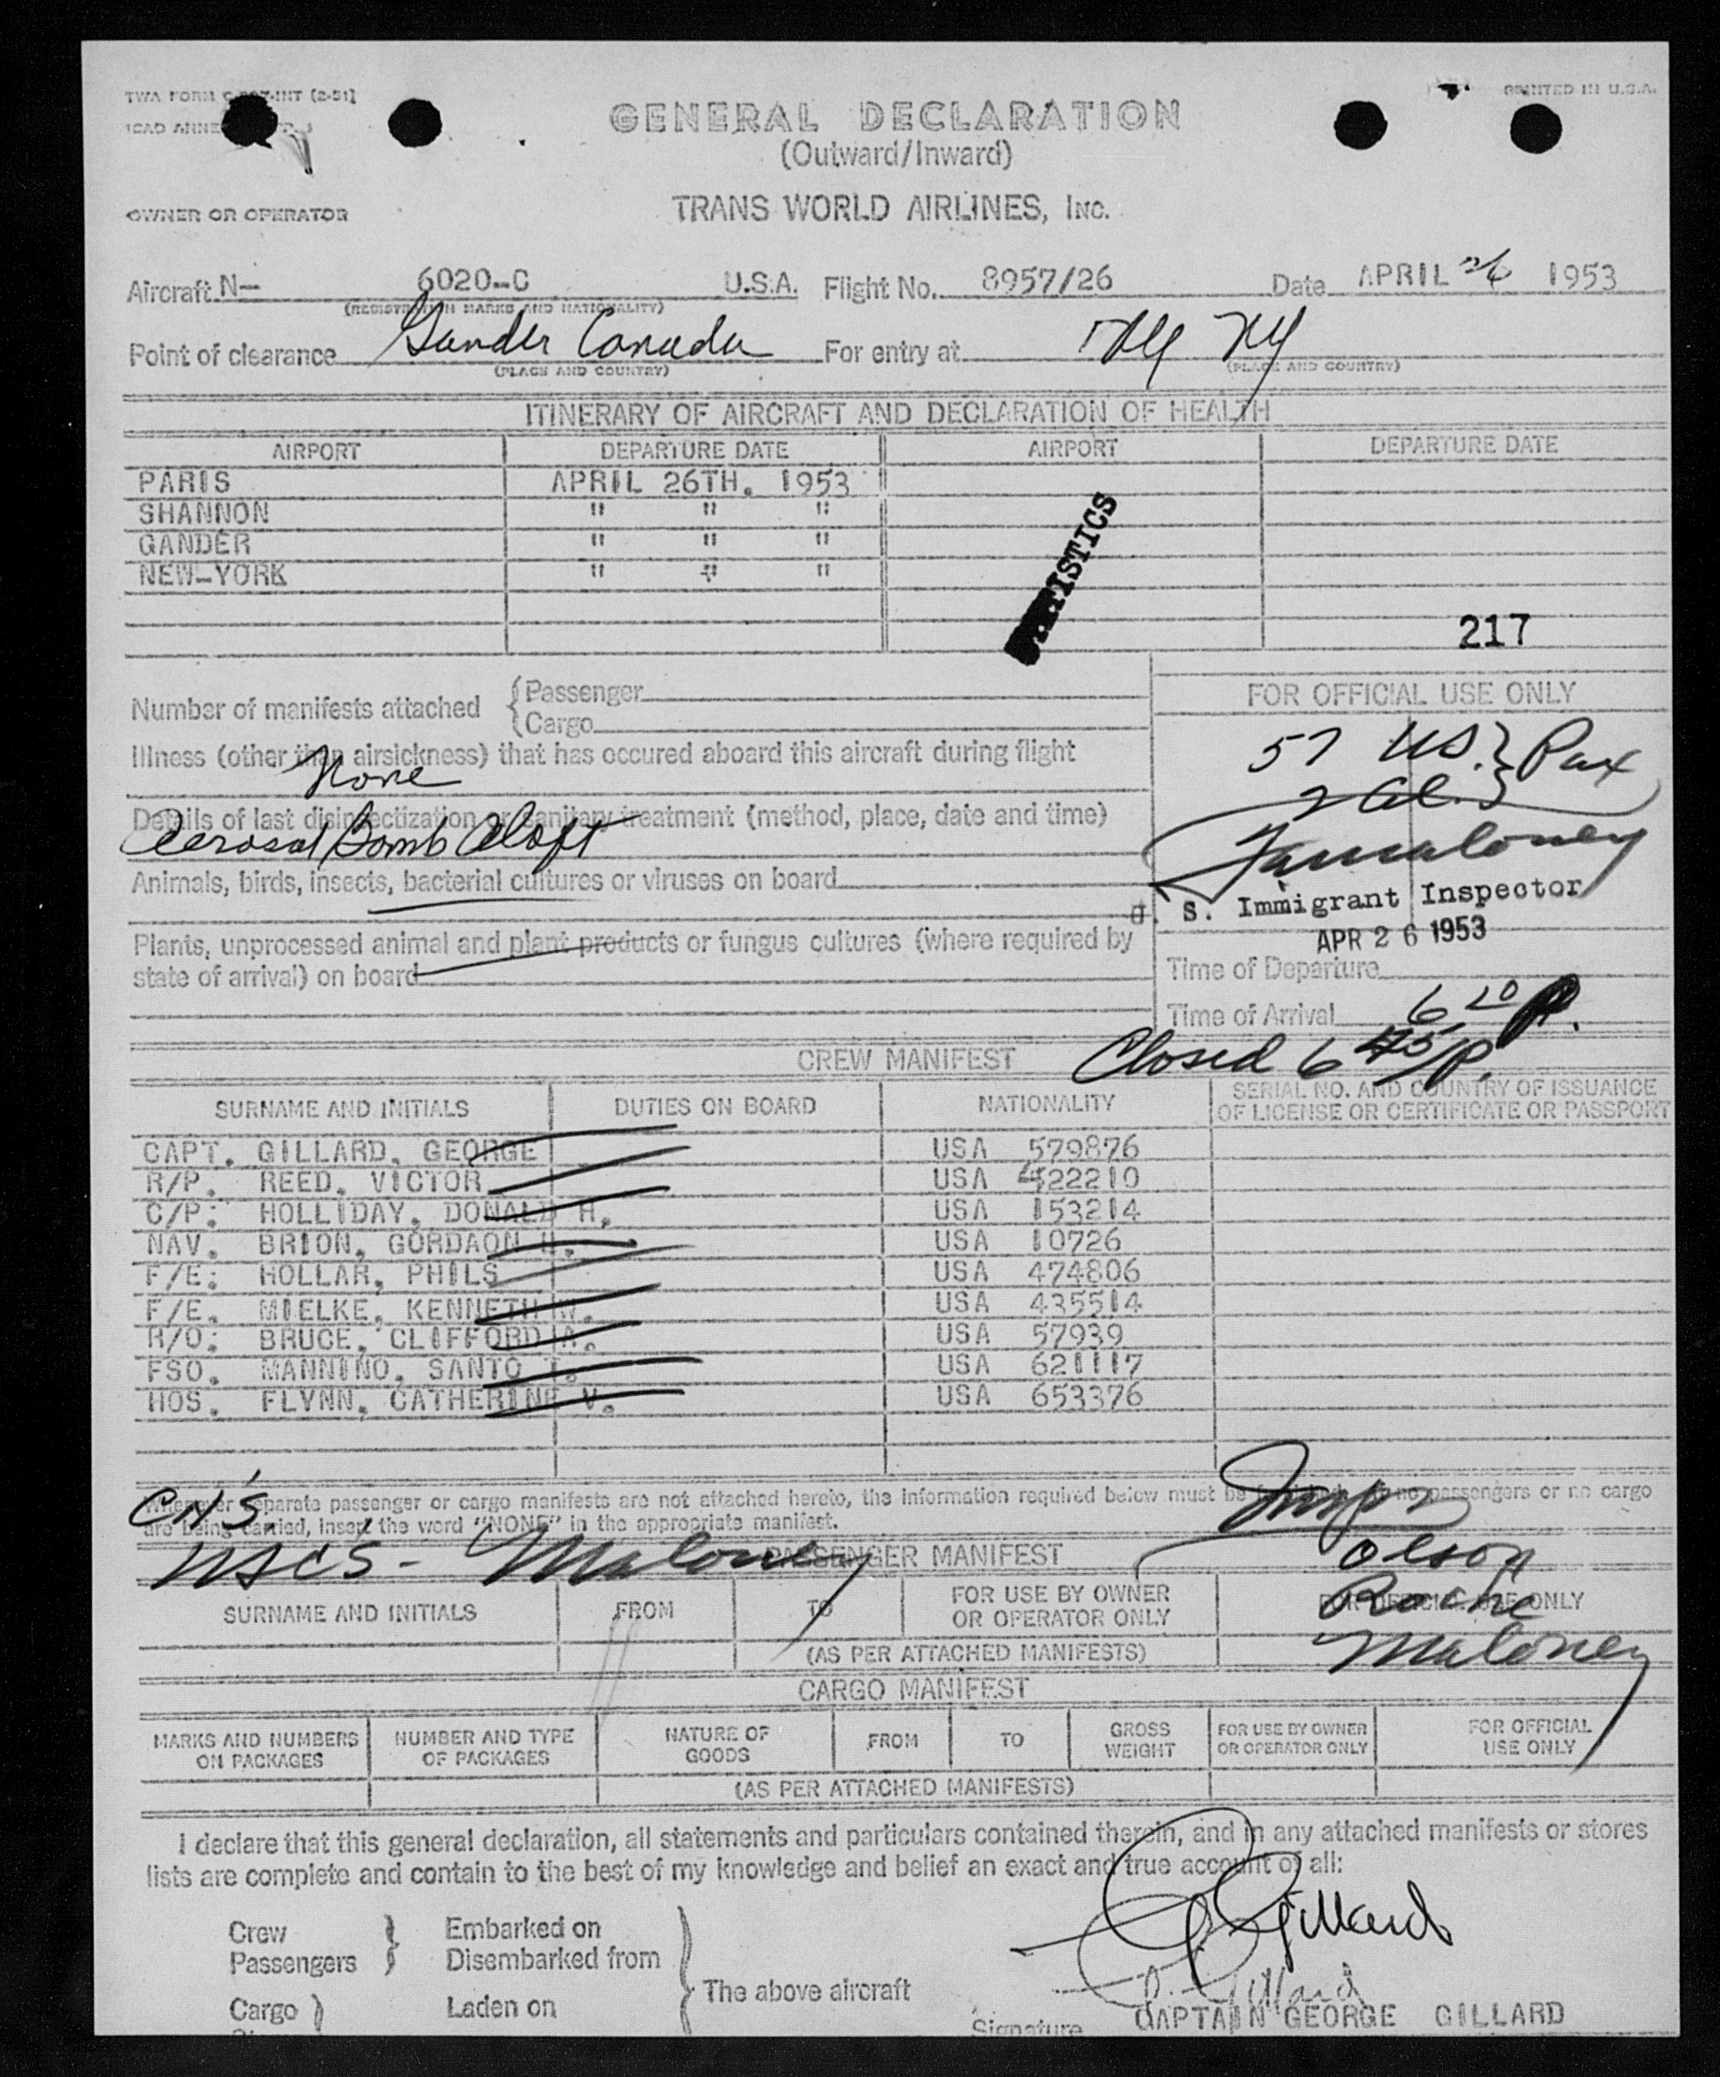 TWA FORM INT (2-51)
PRINTED IN U.S.A.
ICAO ANNE
GENERAL DECLARATION
(Outward/Inward)
OWNER OR OPERATOR TRANS WORLD AIRLINES, INC.
Aircraft N- 6020-C U.S.A. Flight No. 8957/26 Date APRIL 26 1953
(REGISTRATION MARKS AND NATIONALITY)
Point of clearance Gander Canada For entry at NY
(PLACE AND COUNTRY) (PLACE AND COUNTRY)
ITINERARY OF AIRCRAFT AND DECLARATION OF HEALTH
AIRPORT DEPARTURE DATE AIRPORT DEPARTURE DATE
PARIS APRIL 26TH. 1953
SHANNON " " "
GANDER " " "
NEW-YORK " " "
217
Number of manifests attached { Passenger
Cargo
FOR OFFICIAL USE ONLY
57 US. } Pax
2 al.
Illness (other than airsickness) that has occured aboard this aircraft during flight
None
Details of last disinsectization or Sanitary treatment (method, place, date and time)
Aerosol Bomb Aloft
Animals, birds, insects, bacterial cultures or viruses on board
Maloney
U. S. Immigrant Inspector
APR 26 1953
Plants, unprocessed animal and plant products or fungus cultures (where required by
state of arrival) on board
Time of Departure
Time of Arrival 6 20 P.
Closed 6 45 P.
CREW MANIFEST
SURNAME AND INITIALS DUTIES ON BOARD NATIONALITY SERIAL NO. AND COUNTRY OF ISSUANCE
OF LICENSE OR CERTIFICATE OR PASSPORT
CAPT. GILLARD, GEORGE USA 579876
R/P. REED, VICTOR USA 422210
C/P: HOLLIDAY, DONALD H. USA 153214
NAV. BRION, GORDAON H. USA 10726
F/E: HOLLAR, PHILS USA 474806
F/E. MIELKE, KENNETH W. USA 435514
R/O: BRUCE, CLIFFORD A. USA 57939
FSO. MANNINO, SANTO T. USA 621117
HOS. FLYNN, CATHERINE V. USA 653376
Whenever separate passenger or cargo manifests are not attached hereto, the information required below must be no passengers or no cargo
are being carried, insert the word "NONE" in the appropriate manifest.
CH'S.
Insps
Maloney
Olson
PASSENGER MANIFEST
Roche
Maloney
SURNAME AND INITIALS FROM TO FOR USE BY OWNER
OR OPERATOR ONLY
FOR OFFICIAL USE ONLY
(AS PER ATTACHED MANIFESTS)
CARGO MANIFEST
MARKS AND NUMBERS
ON PACKAGES
NUMBER AND TYPE
OF PACKAGES
NATURE OF
GOODS
FROM
TO
GROSS
WEIGHT
FOR USE BY OWNER
OR OPERATOR ONLY
FOR OFFICIAL
USE ONLY
(AS PER ATTACHED MANIFESTS)
I declare that this general declaration, all statements and particulars contained therein, and in any attached manifests or stores
lists are complete and contain to the best of my knowledge and belief an exact and true account of all:
Crew
Passengers
Embarked on
Disembarked from
Cargo
Laden on
The above aircraft
G. Gillard
Gillard
Signature CAPTAIN GEORGE GILLARD